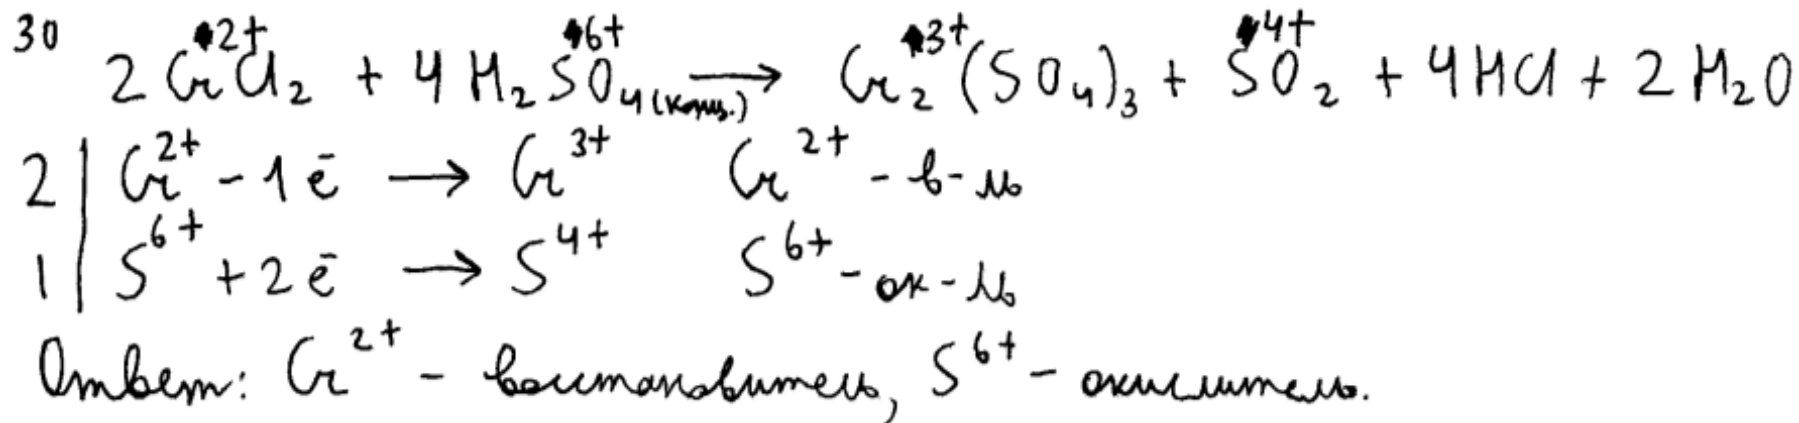 30 2CrCl₂ + 4H₂SO₄(конц.) → Cr₂(SO₄)₃ + SO₂ + 4HCl + 2H₂O (Cr²⁺, S⁶⁺, Cr³⁺, S⁴⁺)
2 | Cr²⁺ - 1ē → Cr³⁺ Cr²⁺ - в-ль
1 | S⁶⁺ + 2ē → S⁴⁺ S⁶⁺ - ок-ль
Ответ: Cr²⁺ - восстановитель, S⁶⁺ - окислитель.